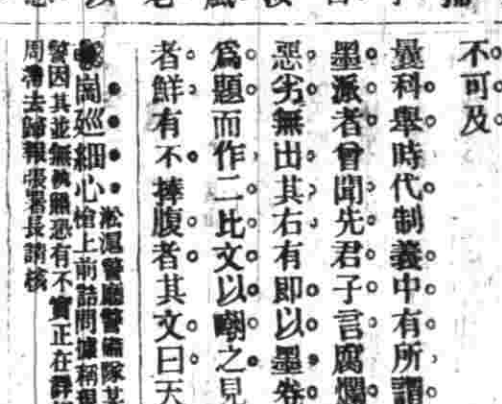 不可及
曩科舉時代制義中有所謂
墨派者曾聞先君子言腐爛
惡劣無出其右有即以墨卷
爲題而作二比文以嘲之見
者鮮有不捧腹者其文曰天
崗廵細心
淞滬警廳警備隊某
槍上前詰問據稱
警因其並無執照恐有不實正在詳
周帶去歸報張署長請核